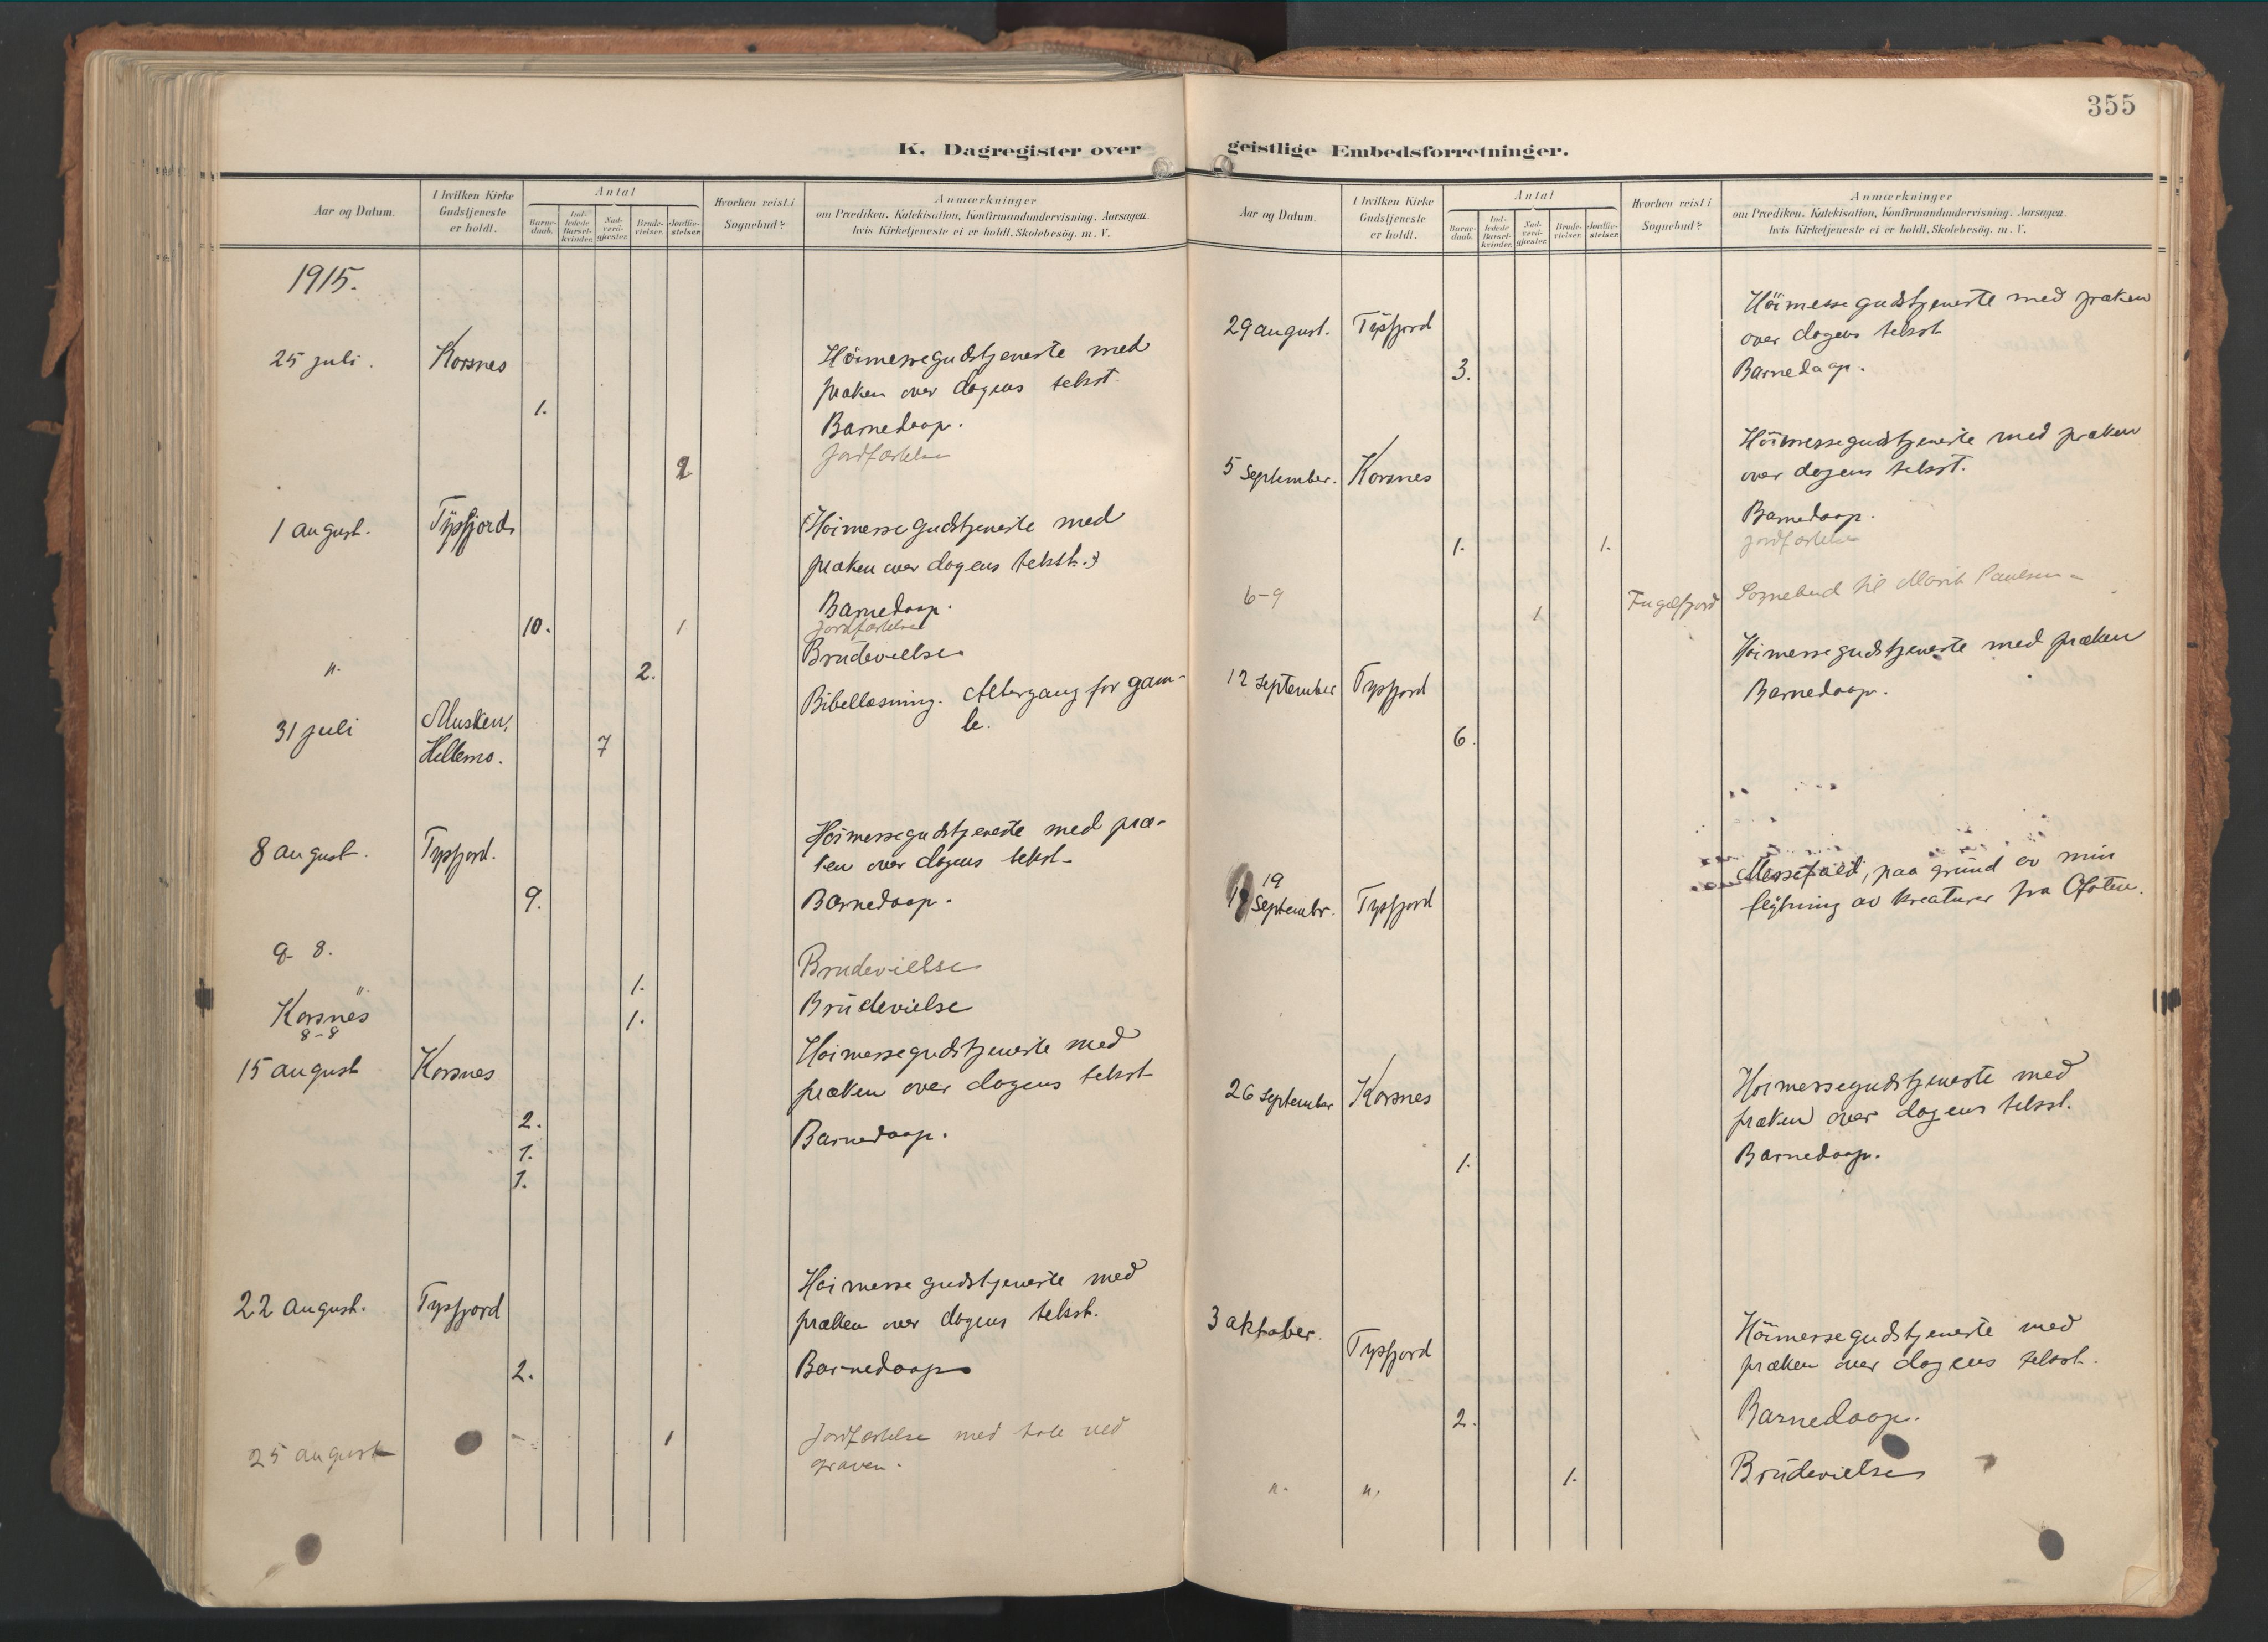 355
K. Dagregister over geistlige Embedsforretninger.
Aar og Datum.
I hvilken Kirke Gudstjeneste er holdt.
Antal
Barne-daab.
Ind-ledede Barsel-kvinder.
Nad-verd-gjæster.
Brude-vielser.
Jordfæ-stelser.
Hvorhen reist i Sognebud?
Anmærkninger
om Prædiken, Katekisation, Konfirmandundervisning. Aarsagen,
hvis Kirketjeneste ei er holdt. Skolebesøg. m. V.
1915.
25 juli. Korsnes Höimessegudstjeneste med
præken over dagens tekst
1. Barnedaap.
2 Jordfæstelse
1 august. Tysfjord Höimessegudstjeneste med
præken over dagens tekst.
10. Barnedaap.
1 Jordfæstelse
". 2. Brudevielse
31 juli Musken, Hellemo. 7 Bibellæsning. Altergang for gam-
le.
8 august. Tysfjord. Höimessegudstjeneste med præ-
ken over dagens tekst.
9. Barnedaap.
9-8. 1. Brudevielse
"
Korsnes 1. Brudevielse
8-8
15 august Korsnes Höimessegudstjeneste med
præken over dagens tekst
2. Barnedaap.
1.
1.
22 august. Tysfjord Höimessegudstjeneste med
præken over dagens tekst.
2. Barnedaap
25 august 1 Jordfæstelse med tale ved
graven.
Aar og Datum.
I hvilken Kirke Gudstjeneste er holdt.
Antal
Barne-daab.
Ind-ledede Barsel-kvinder.
Nad-verd-gjæster.
Brude-vielser.
Jordfæ-stelser.
Hvorhen reist i Sognebud?
Anmærkninger
om Prædiken, Katekisation, Konfirmandundervisning. Aarsagen,
hvis Kirketjeneste ei er holdt. Skolebesøg. m. V.
29 august. Tysfjord Höimessegudstjeneste med præken
over dagens tekst
3. Barnedaap.
5 September. Korsnes Höimessegudstjeneste med præken
over dagens tekst.
1. Barnedaap.
1. Jordfæstelse
6-9 1 Fuglfjord Sognebud til Marit Paulsen
12 September Tysfjord Höimessegudstjeneste med præken
6. Barnedaap.
19
Septembr. Tysfjord Messefald, paa grund av min
flytning av kreaturer fra Ofoten.
26 September Korsnes Höimessegudstjeneste med
præken over dagens tekst.
1. Barnedaap.
3 oktober. Tysfjord Höimessegudstjeneste med
præken over dagens tekst.
2. Barnedaap.
". ". 1. Brudevielse